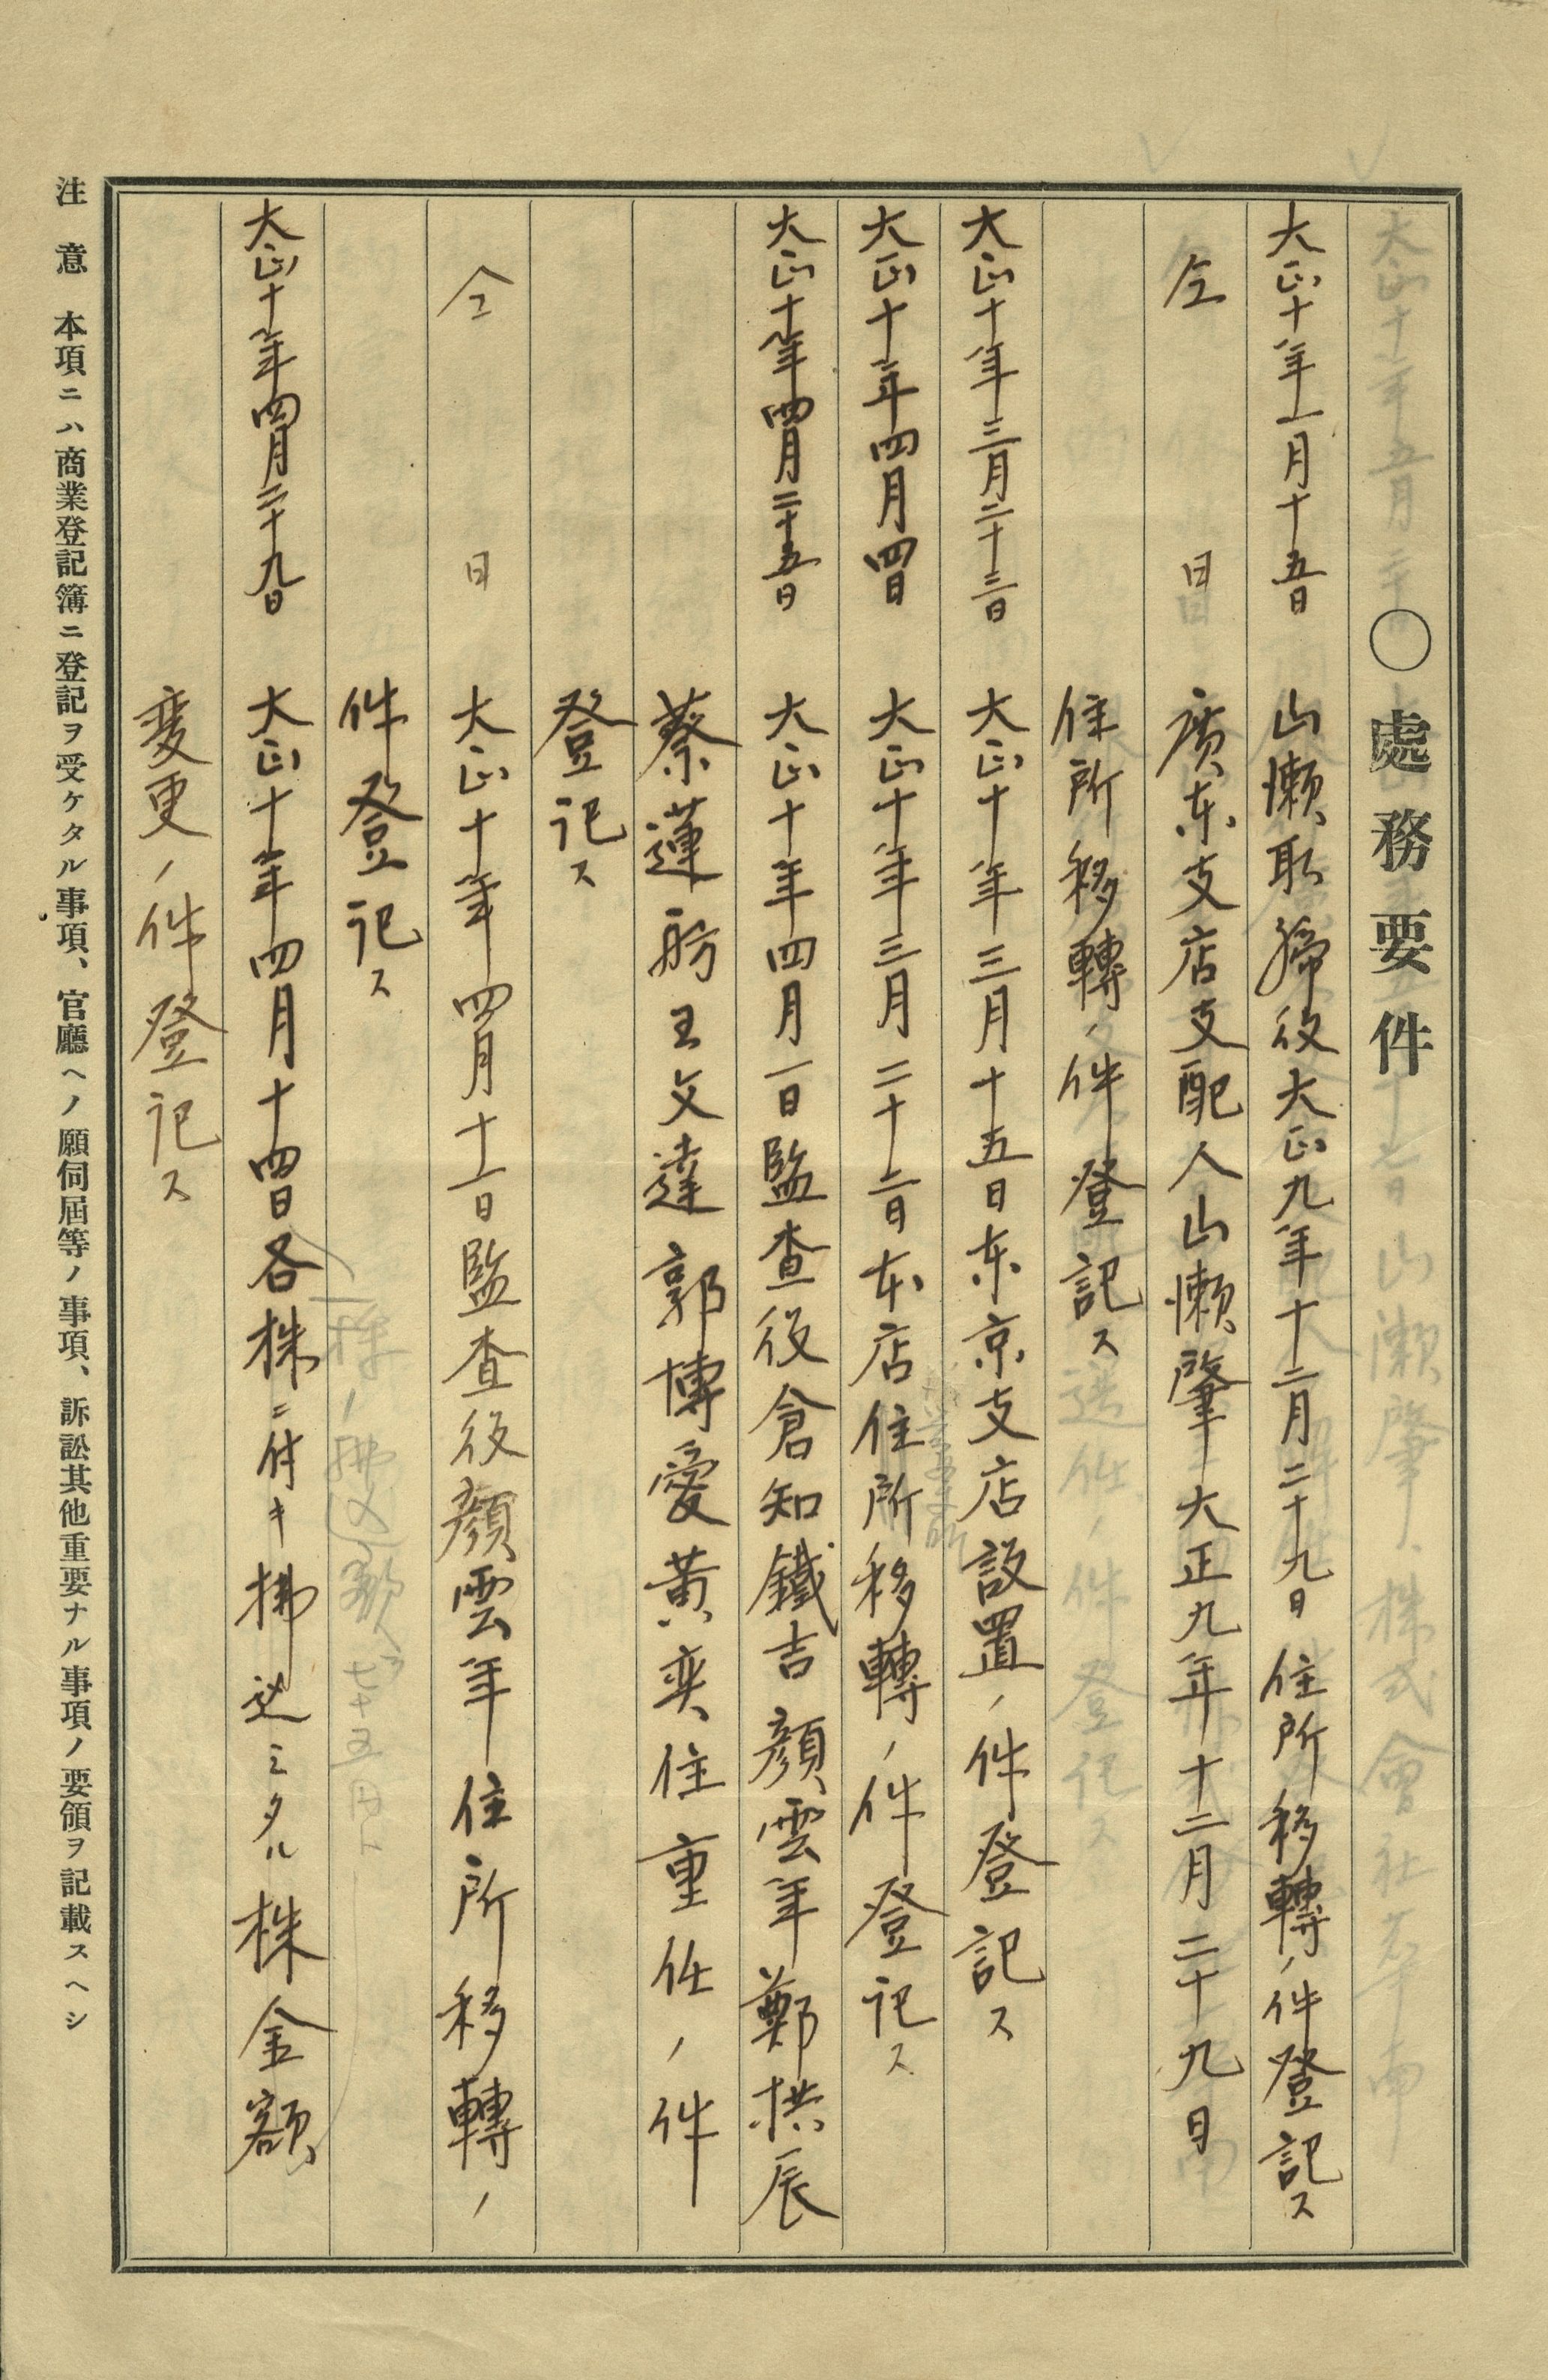 ○處務要件
大正十年一月十五日 山懶取締役大正九年十二月二十九日住所移轉ノ件登記ス
仝 日 廣東支店支配人山懶肇大正九年十二月二十九日
住所移轉ノ件登記ス
大正十年三月二十三日 大正十年三月十五日東京支店設置ノ件登記ス
大正十年四月四日 大正十年三月二十二日本店住所移轉ノ件登記ス
大正十年四月二十五日 大正十年四月一日監查役倉知鐵吉顏雲年鄭拱辰
蔡蓮舫王文達郭博愛黃奕住重任ノ件
登記ス
仝 日 大正十年四月十一日監查役顏雲年住所移轉ノ
件登記ス
大正十年四月二十九日 大正十年四月十四日各株ニ付キ拂込ミタル株金額
変更ノ件登記ス
注意 本項ニハ商業登記簿ニ登記ヲ受ケタル事項、官廳ヘノ願伺屆等ノ事項、訴訟其他重要ナル事項ノ要領ヲ記載スヘシ